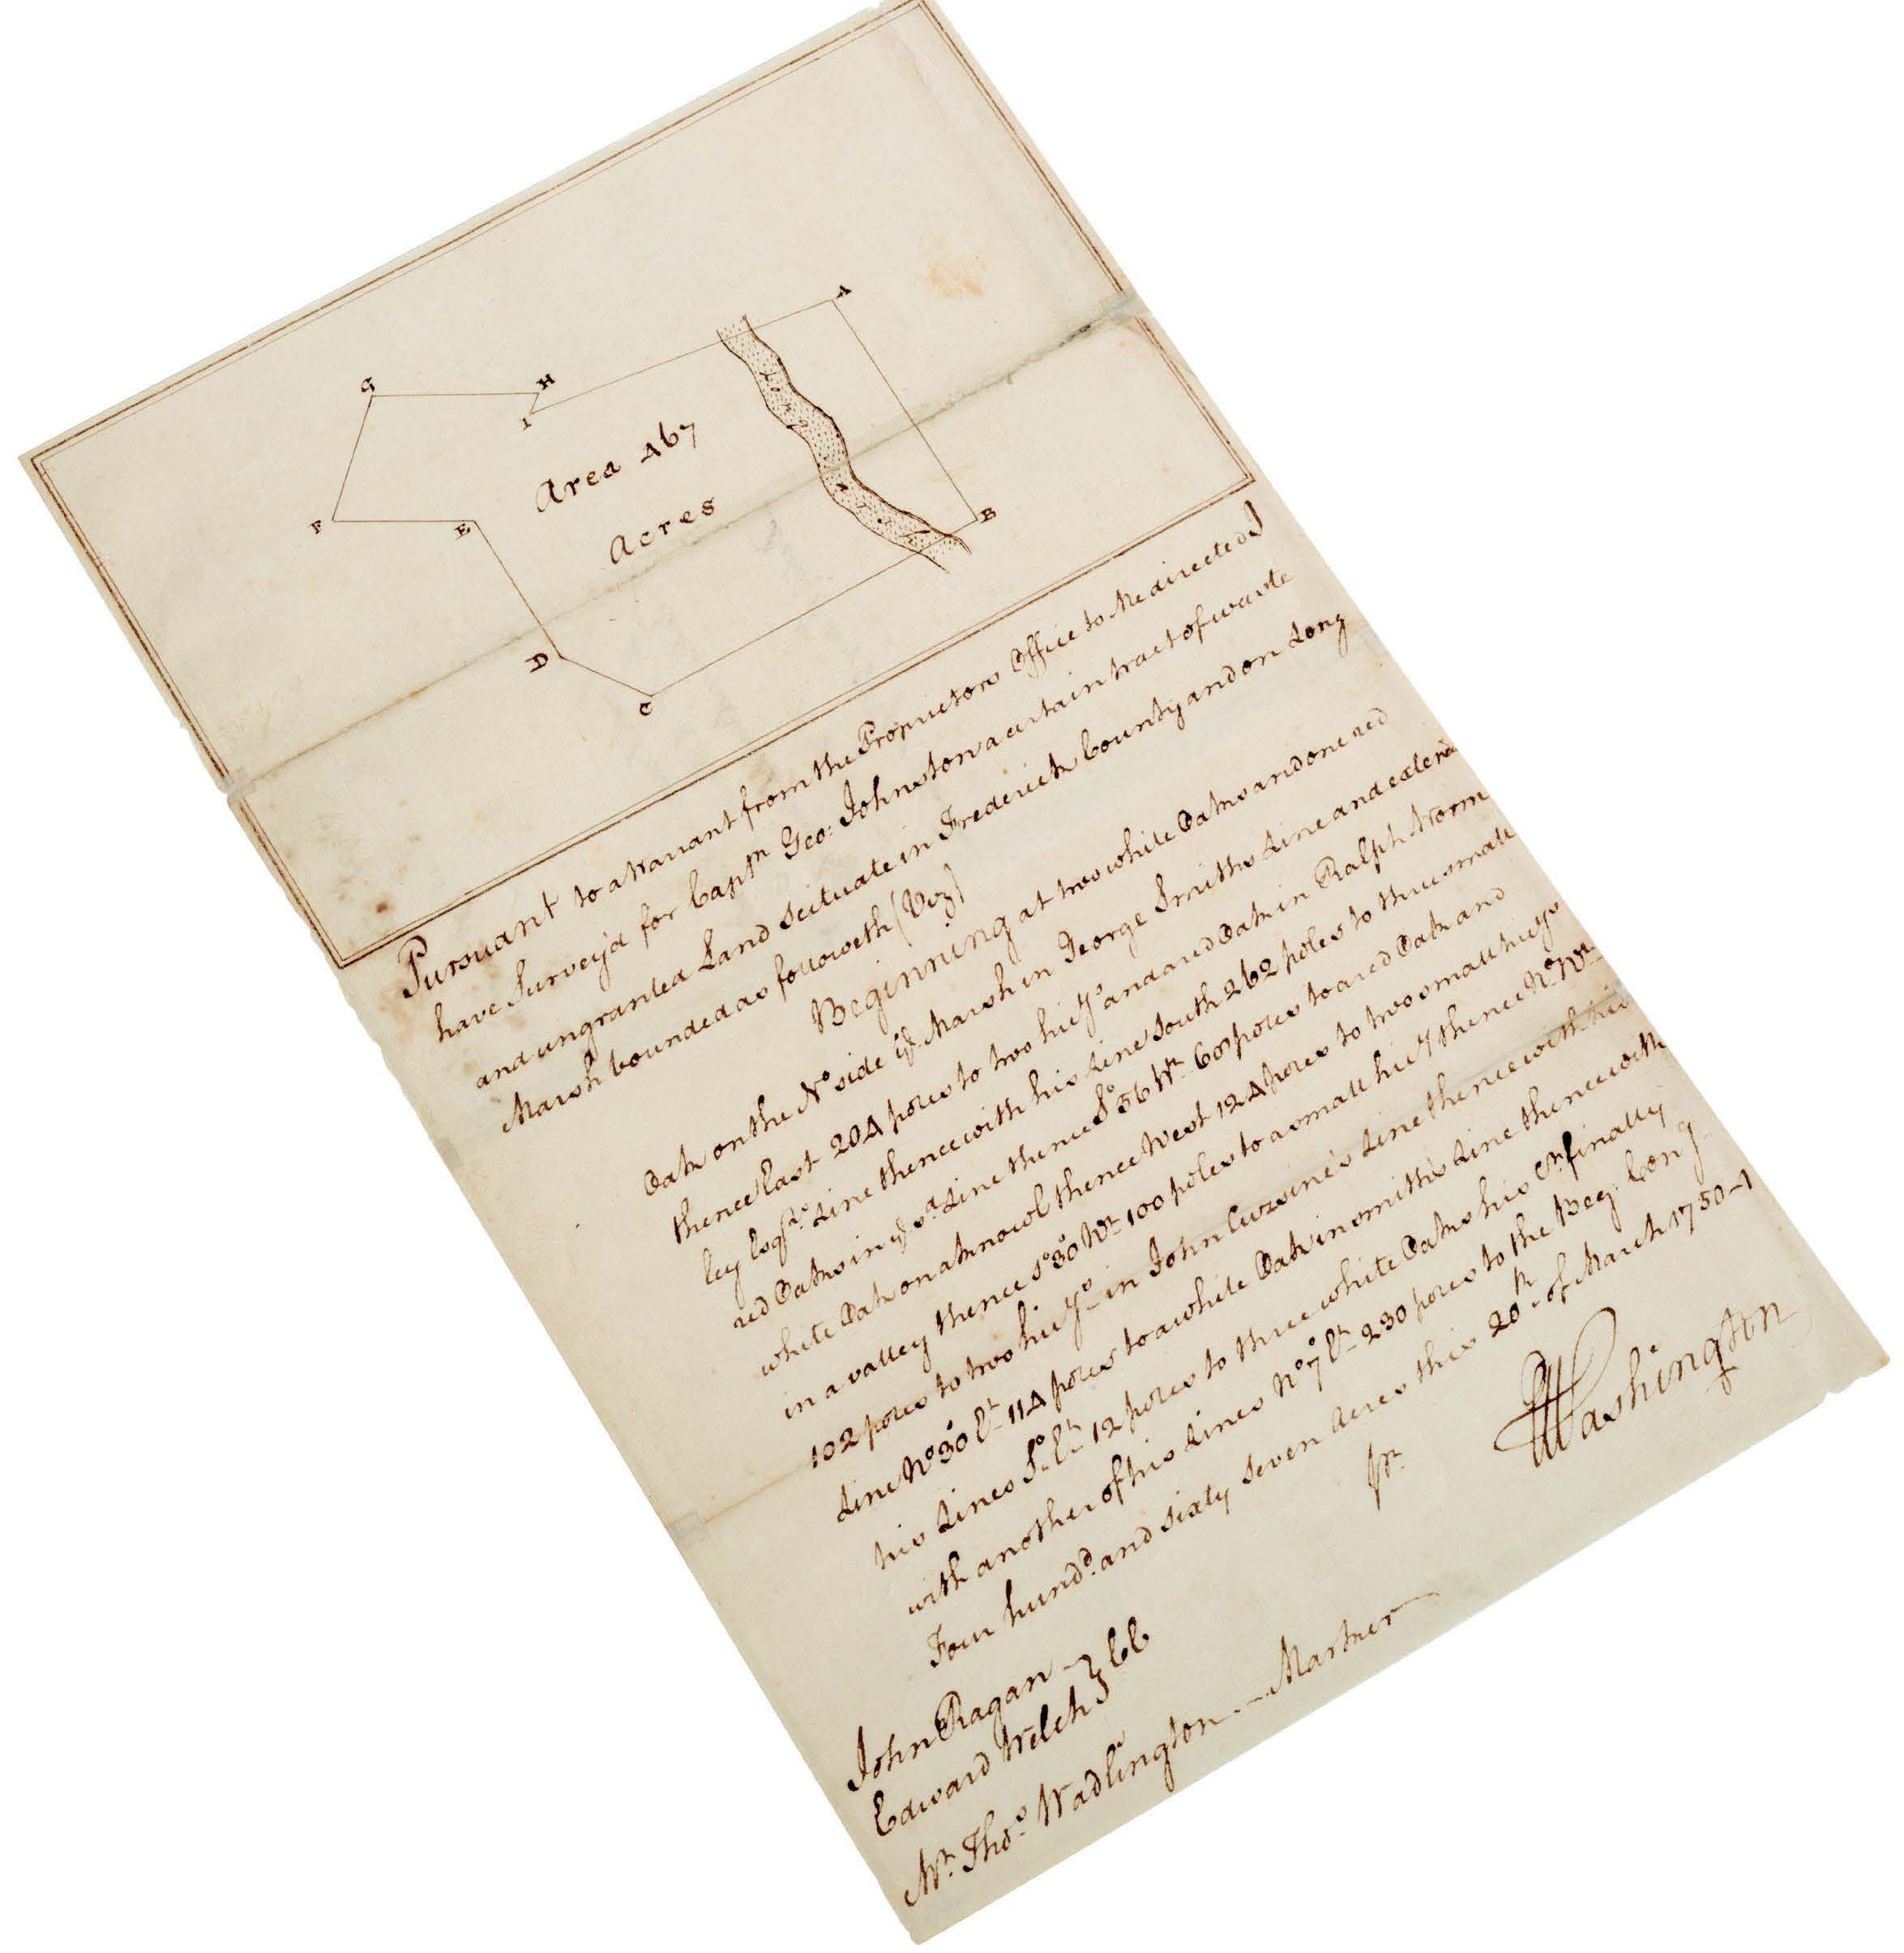 A
G
H
I
Area 467
Acres
F
E
B
D
C
Pursuant to a Warrant from the Proprietors Office to Me directed I
have Survey'd for Capt.n Geo: Johnston a certain tract of waste
and ungranted Land scituate in Frederick County and on Long
Marsh bounded as followeth (Viz)
Beginning at two white Oaks and one red
Oak on the No side ye Marsh in George Smiths Line and extend
thence East 204 poles to two hicys and a red Oak in Ralph Worm
ley Esqrs. Line thence with his Line South 262 poles to three small
red Oaks in ye sd. Line thence So. 56 Wt. 60 poles to a red Oak and
white Oak on a knowl thence West 124 poles to two small hicys
in a valley thence So. 30 Wt. 100 poles to a small hicy thence No. Wt.
102 poles to two hicys in John Cuzsine's Line thence with his
Line No. 30 Et. 114 poles to a white Oak in Smith's Line thence with
his Lines So. Et. 12 poles to three white Oaks his Cr. finally
with another of his Lines No. 7 Et. 230 poles to the Beg: Cong
Four hundd. and sixty seven Acres this 20th. of March 1750-1
pr.
GWashington
John Ragan } CC
Edward Welch
Mr. Thos. Wadlington -- Marker